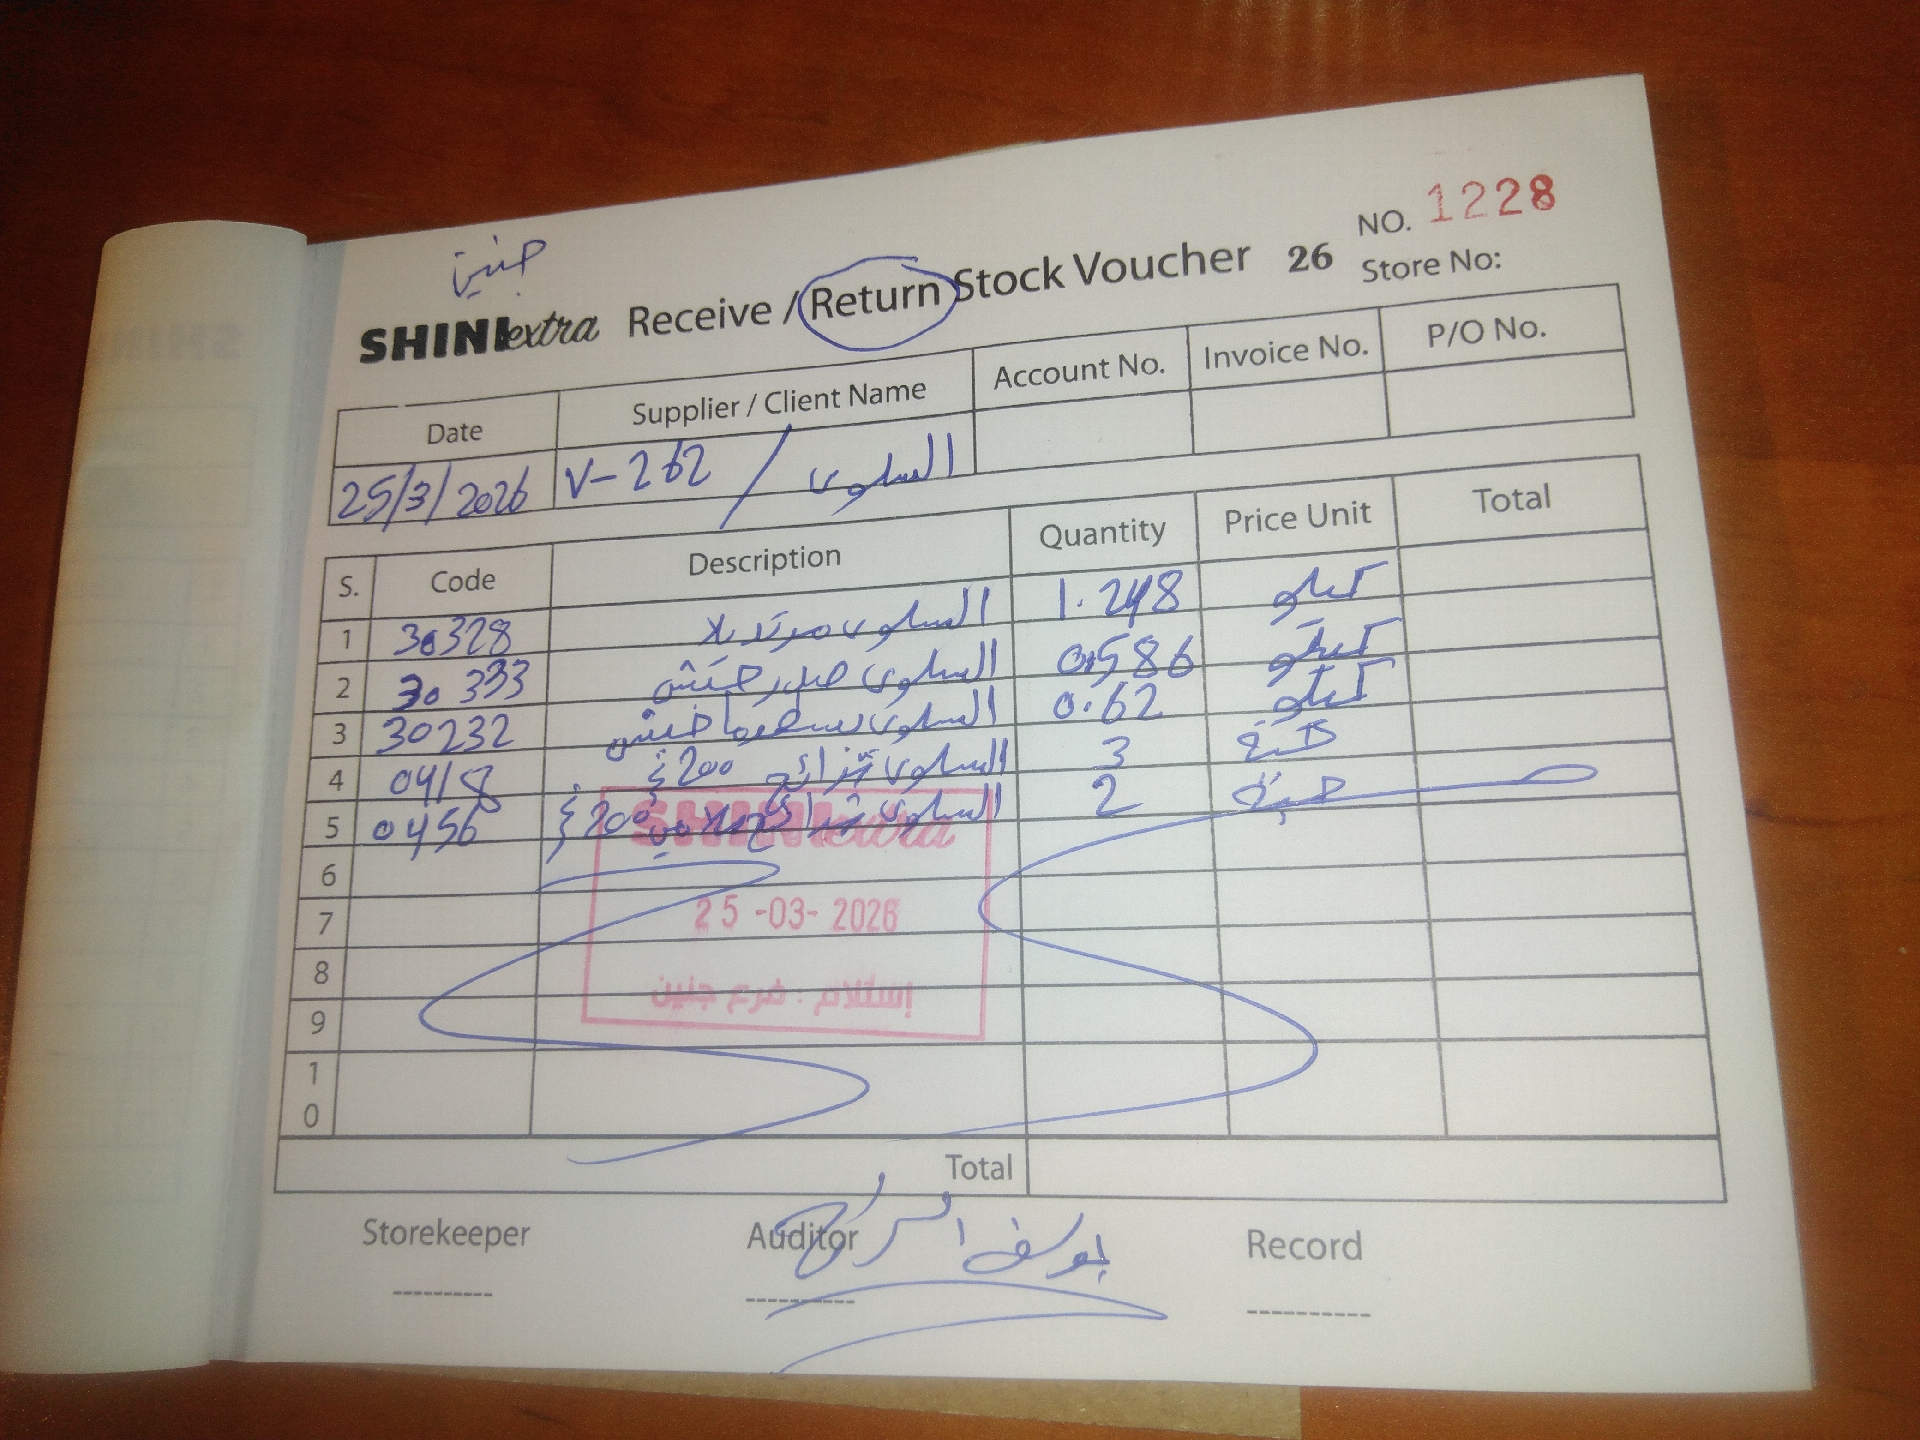 جنين
NO. 1228
SHINI extra Receive / Return Stock Voucher 26
Store No:
Date Supplier / Client Name Account No. Invoice No. P/O No.
25/3/2026 V-262 / السلوى
S. Code Description Quantity Price Unit Total
1 30328 السلوى مرتديلا 1.248 كيلو
2 30333 السلوى صدر حبش 0.586 كيلو
3 30232 السلوى حبش 0.62 كيلو
4 0418 السلوى شرائح 200غ 3 حبة
5 0456 السلوى شرائح 200غ 2 حبة
SHINI extra
6
7
25 -03- 2026
8
إستلام : فرع جنين
9
10
Total
Storekeeper Auditor Record
يوسف